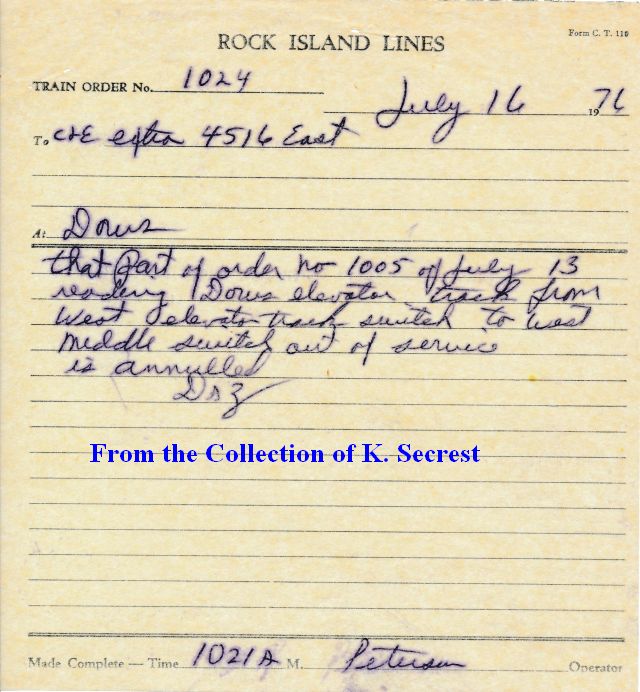 Form C. T. 110
ROCK ISLAND LINES
TRAIN ORDER No. 1024
July 16 1976
To C&E extra 4516 East
At Dows
that part of order no 1005 of July 13
reading Dows elevator track from
West elevator track switch to west
middle switch out of service
is annulled
From the Collection of K. Secrest
Made Complete — Time 1021A M. Petersen Operator